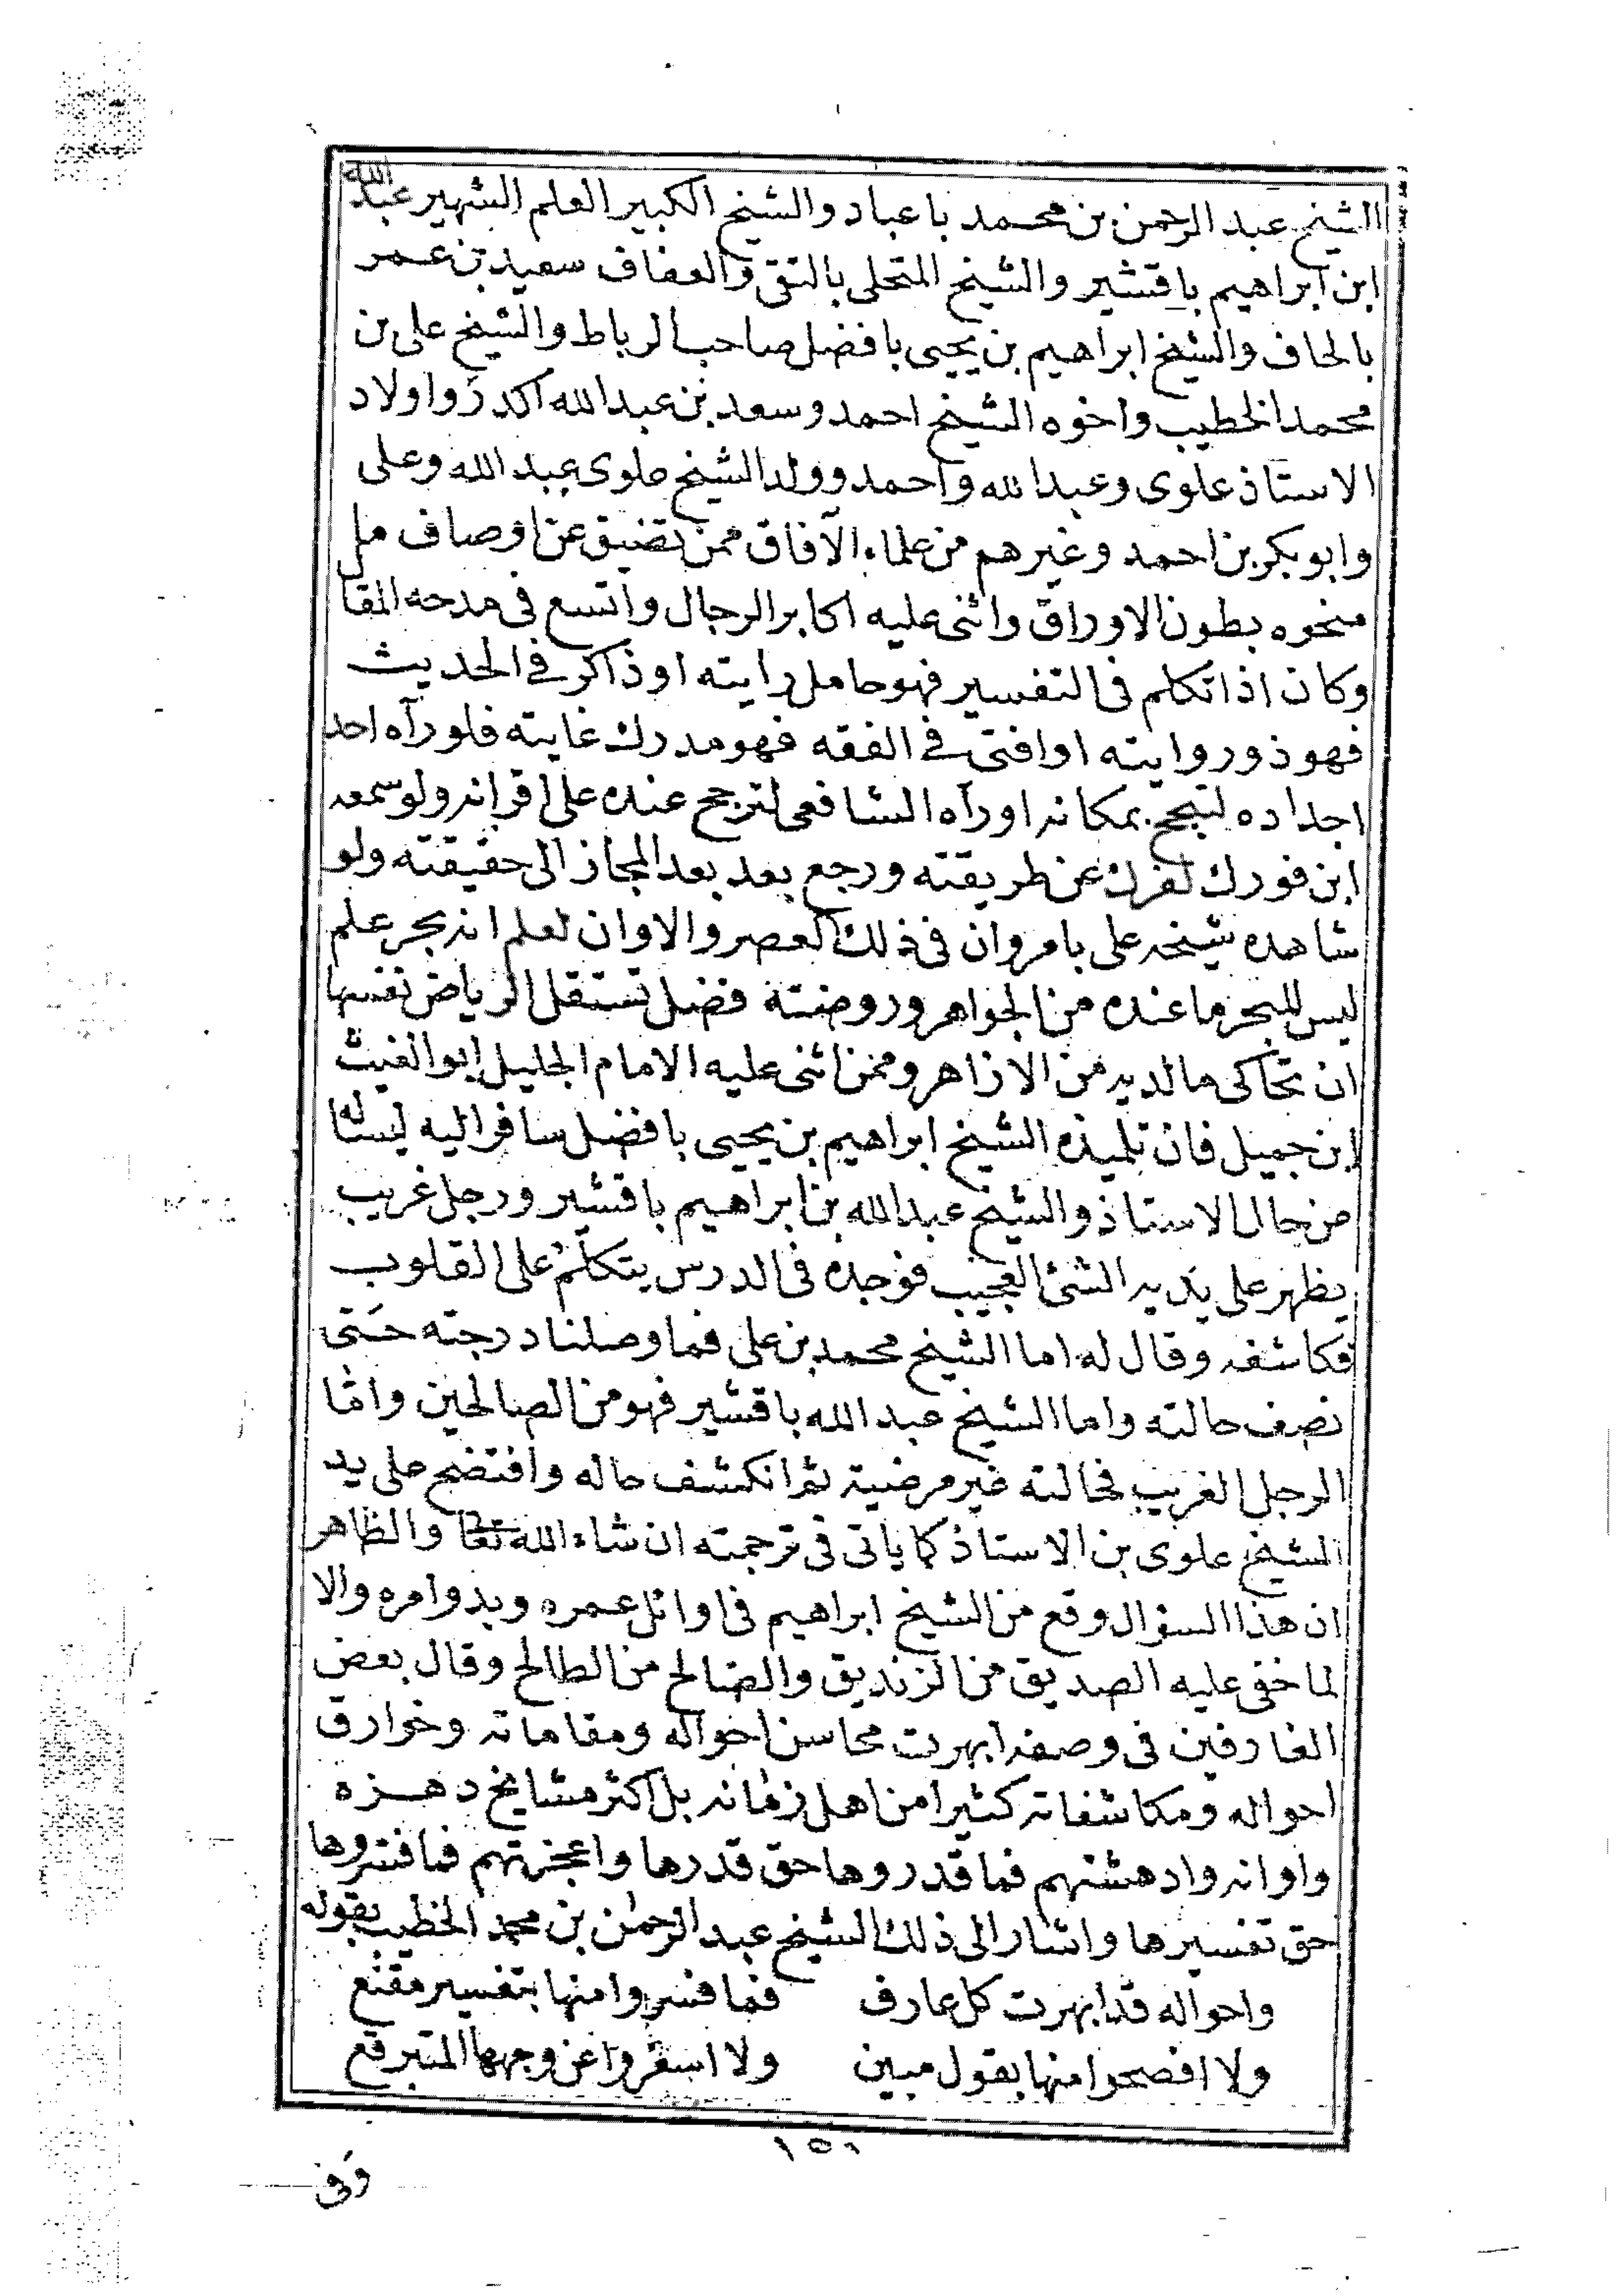 الشيخ عبد الرحمن بن محمد با عباد والشيخ الكبير العلم الشهير عبد الله
ابن ابراهيم باقشير والشيخ المتحلى بالتقى والعفاف سعيد بن عمر
بالحاف والشيخ ابراهيم بن يحيى بافضل صاحب الرباط والشيخ على بن
محمد الخطيب واخوه الشيخ احمد وسعد بن عبد الله اكدر واولاد
الاستاذ علوى وعبد الله واحمد وولد الشيخ علوى عبد الله وعلى
وابو بكر بن احمد وغيرهم من علماء الآفاق ممن تضيق عن اوصاف ما
منحوه بطون الاوراق واثنى عليه اكابر الرجال واتسع فى مدحه المقا
وكان اذا تكلم فى التفسير فهو حامل رايته او ذاكر فى الحديث
فهو ذو روايته او افتى فى الفقه فهو مدرك غايته فلو رآه احد
اجداده لتبجح بمكانه او رآه الشافعى لترجح عنده على اقرانه ولو سمعه
ابن فورك لفرك عن طريقته ورجع بعد بعد المجاز الى حقيقته ولو
شاهده شيخه على بامروان فى ذلك العصر والاوان لعلم انه بحر علم
ليس للبحر ما عنده من الجواهر وروضة فضل تستقل الرياض نفسها
ان تحاكى ما لديه من الازاهر وممن اثنى عليه الامام الجليل ابو الغيث
ابن جميل فان تلميذه الشيخ ابراهيم بن يحيى بافضل سافر اليه ليسئاله
من حال الاستاذ والشيخ عبد الله بن ابراهيم باقشير ورجل غريب
يظهر على يديه الشئ العجيب فوجده فى الدرس يتكلم على القلوب
فكاشفه وقال له اما الشيخ محمد بن على فما وصلنا درجته حتى
نصف حالته واما الشيخ عبد الله باقشير فهو من الصالحين واما
الرجل الغريب فحالته غير مرضية ثم انكشف حاله وافتضح على يد
الشيخ علوى بن الاستاذ كما ياتى فى ترجمته ان شاء الله تعا والظاهر
ان هذا السؤال وقع من الشيخ ابراهيم فى اوائل عمره وبدو امره والا
لما خفى عليه الصديق من الزنديق والصالح من الطالح وقال بعض
العارفين فى وصفه ابهرت محاسن احواله ومقاماته وخوارق
احواله ومكاشفاته كثيرا من اهل زمانه بل اكثر مشايخ دهره
واوانه وادهشتهم فما قدروها حق قدرها واعجزتهم فما فسروها
حق تفسيرها واشار الى ذلك الشيخ عبد الرحمن بن محمد الخطيب بقوله
واحواله قد ابهرت كل عارف فما فسروا منها بتفسير مقنع
ولا افصحوا منها بقول مبين ولا اسفروا عن وجهها المتبرقع
١٥٠
وفى